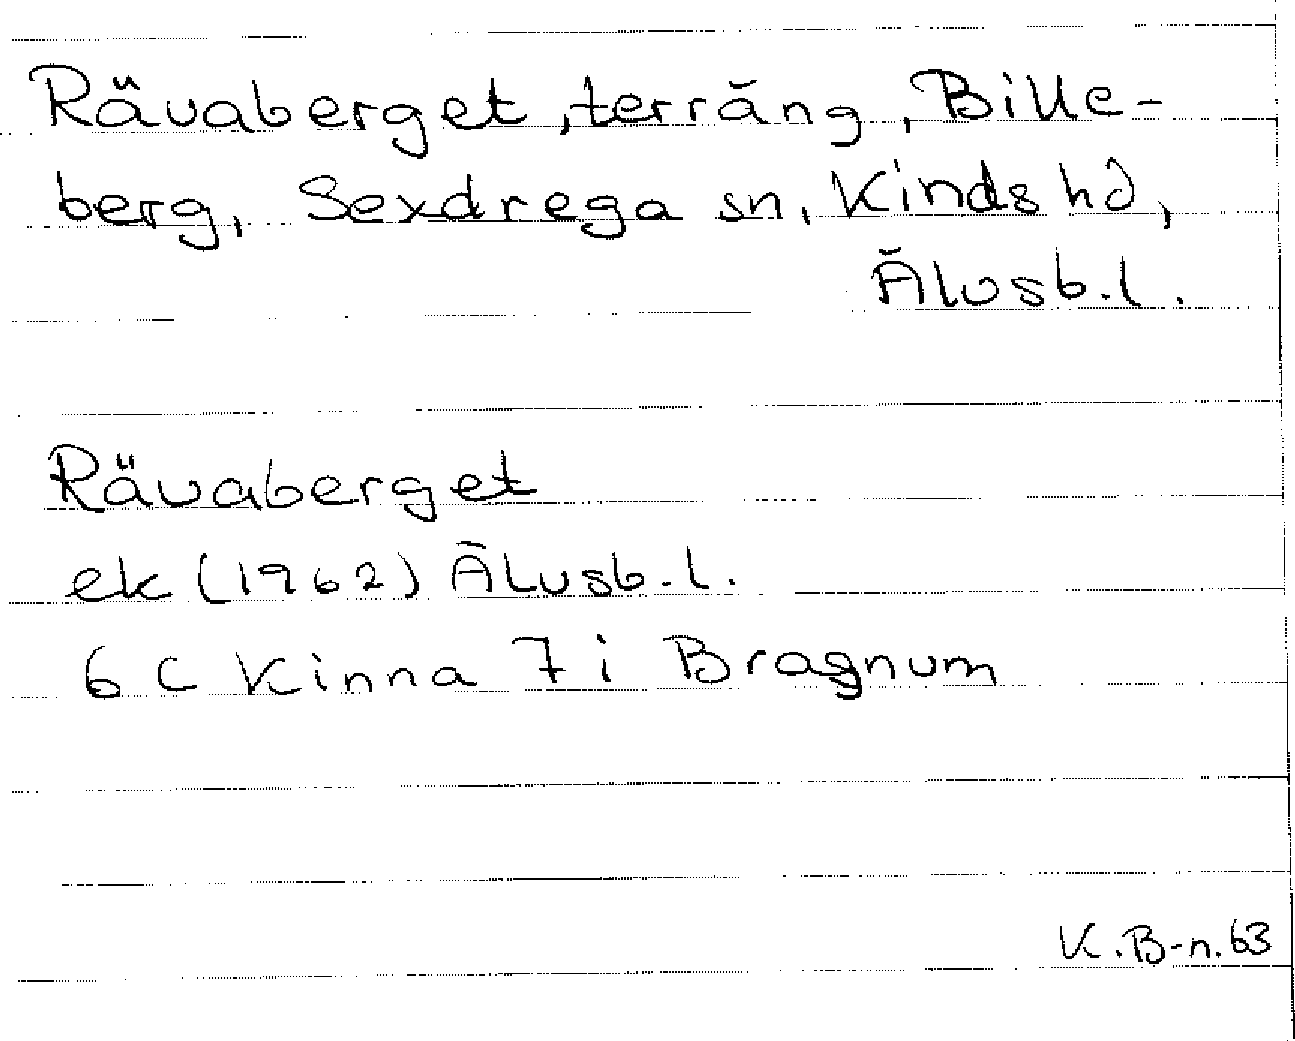 Rävaberget, terräng, Bille-
berg, Sexdrega sn, Kinds hd,
Älvsb.l.
Rävaberget
ek (1962) Älvsb.l.
6 C Kinna 7 i Bragnum
K.B-n.63